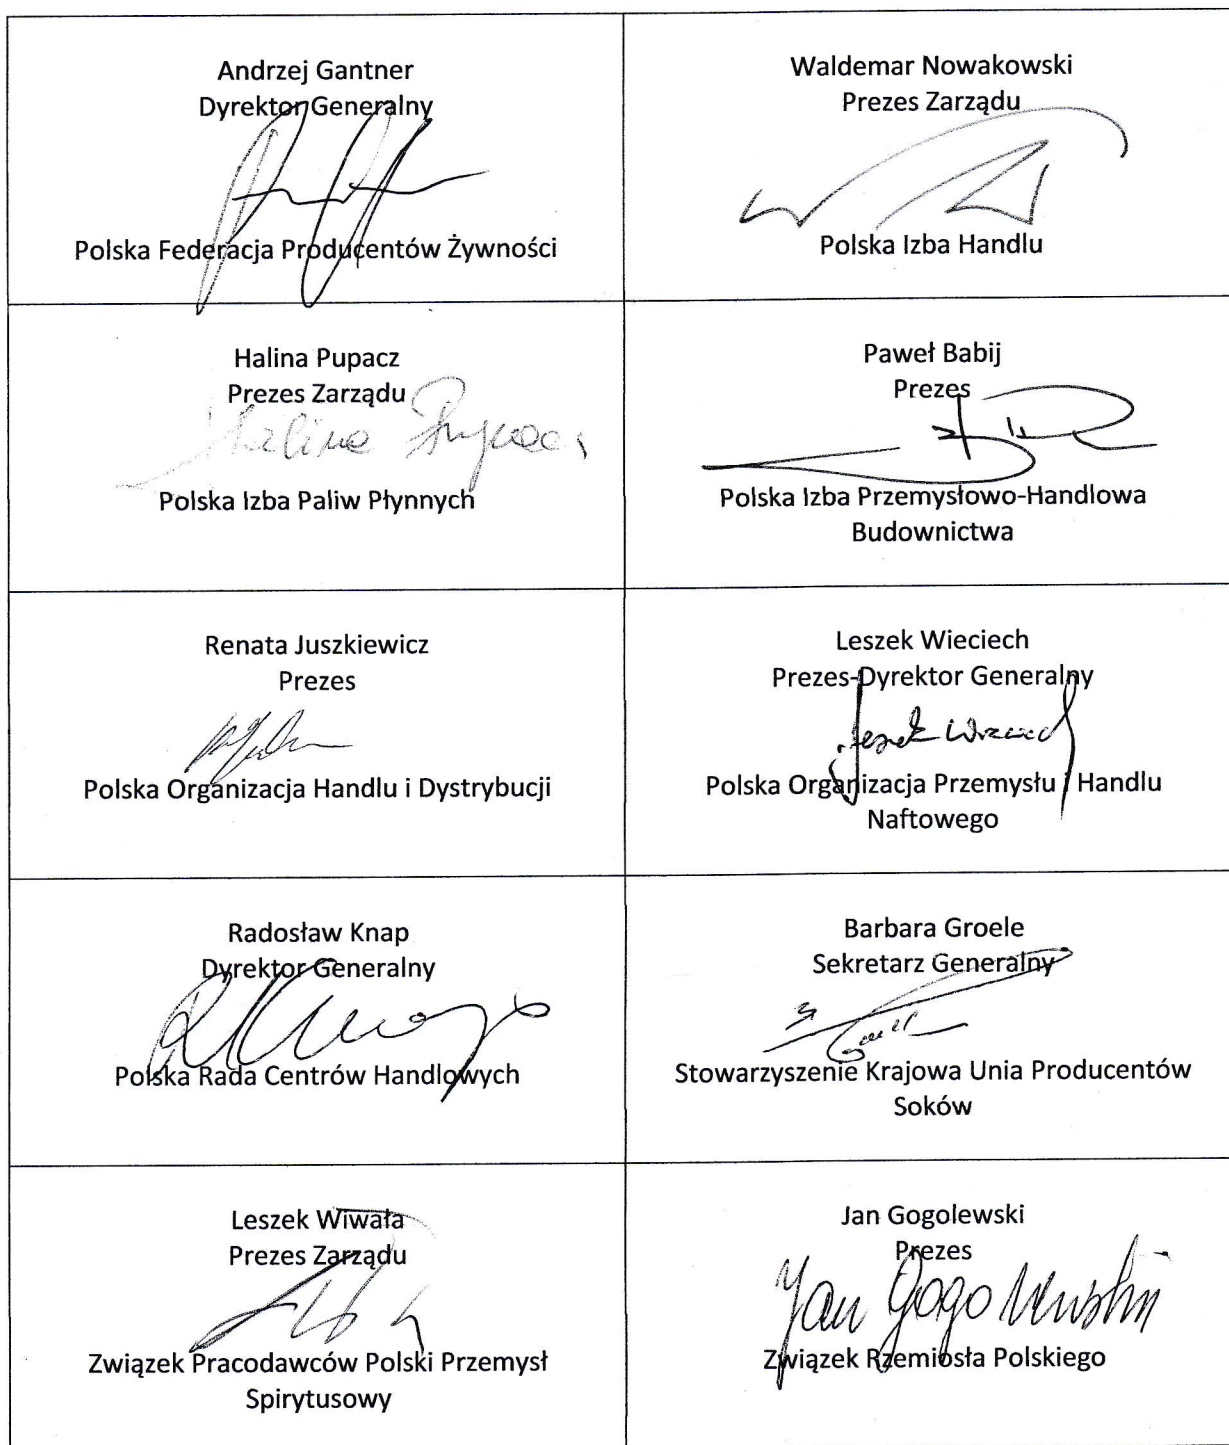 Andrzej Gantner
Dyrektor Generalny
Polska Federacja Producentów Żywności
Waldemar Nowakowski
Prezes Zarządu
Polska Izba Handlu
Halina Pupacz
Prezes Zarządu
Halina Pupacz
Polska Izba Paliw Płynnych
Paweł Babij
Prezes
Polska Izba Przemysłowo-Handlowa
Budownictwa
Renata Juszkiewicz
Prezes
Polska Organizacja Handlu i Dystrybucji
Leszek Wieciech
Prezes-Dyrektor Generalny
Polska Organizacja Przemysłu i Handlu
Naftowego
Radosław Knap
Dyrektor Generalny
Polska Rada Centrów Handlowych
Barbara Groele
Sekretarz Generalny
Stowarzyszenie Krajowa Unia Producentów
Soków
Leszek Wiwała
Prezes Zarządu
Związek Pracodawców Polski Przemysł
Spirytusowy
Jan Gogolewski
Prezes
Jan Gogolewski
Związek Rzemiosła Polskiego